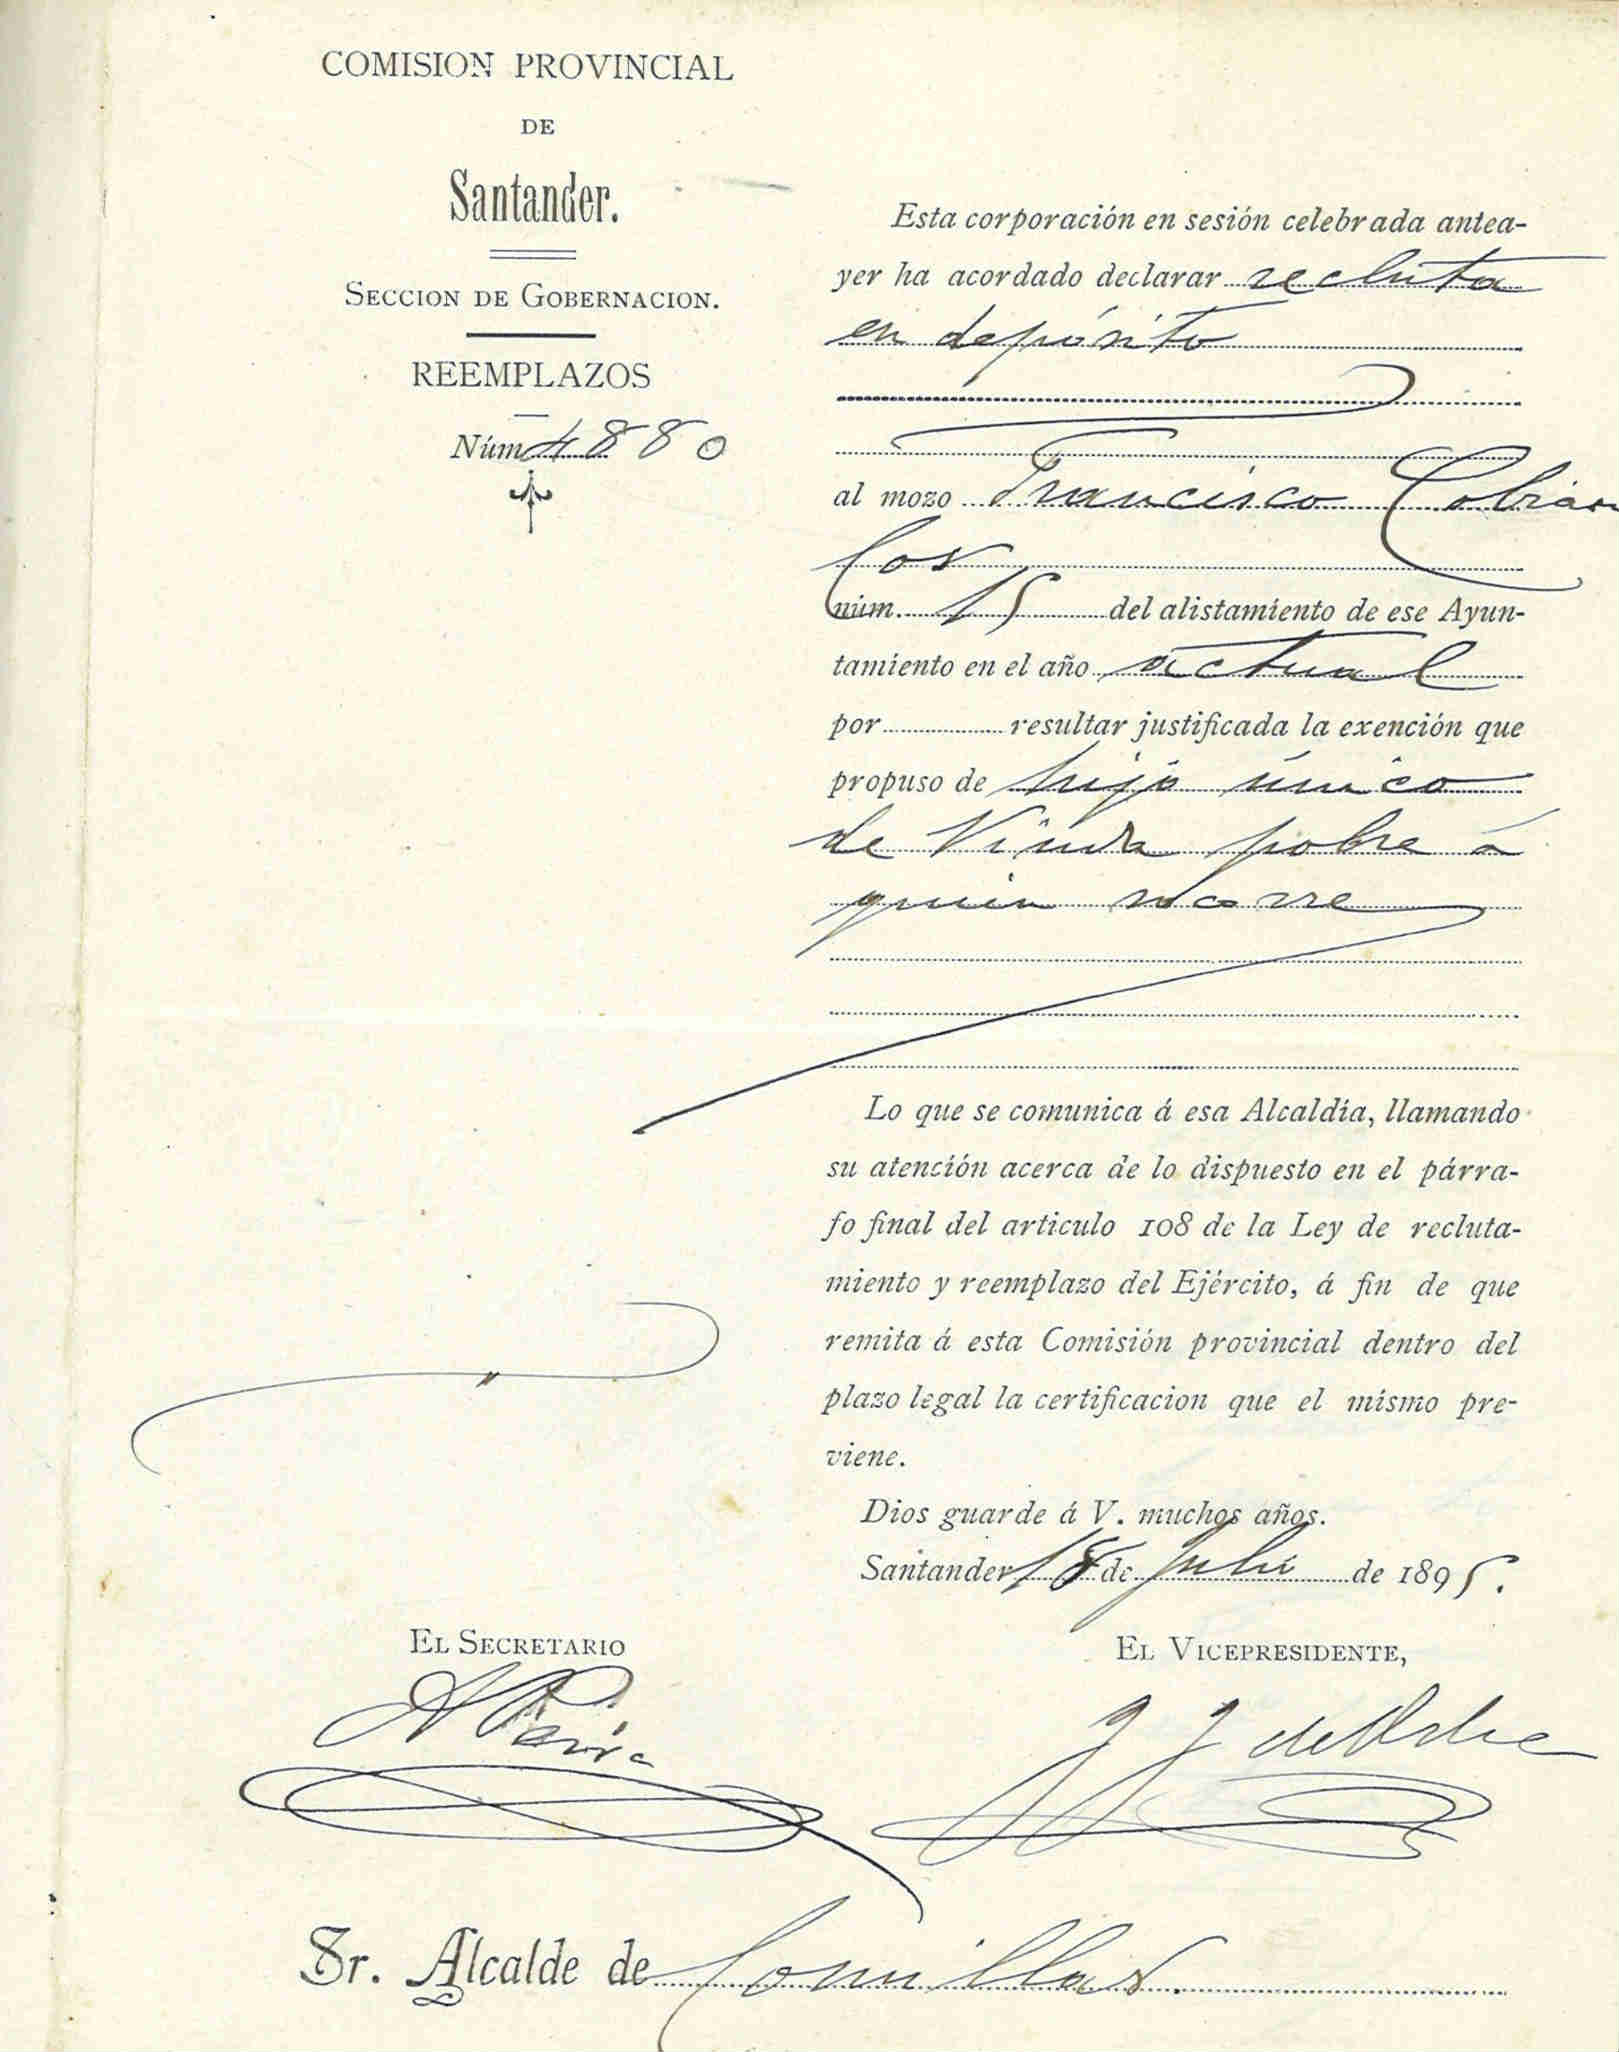 COMISION PROVINCIAL
DE
Santander.
SECCION DE GOBERNACION.
REEMPLAZOS
Núm. 4880
Esta corporación en sesión celebrada antea-
yer ha acordado declarar recluta
en depósito
al mozo Francisco Cobian
Cos
núm. 15 del alistamiento de ese Ayun-
tamiento en el año actual
por resultar justificada la exención que
propuso de hijo único
de Viuda pobre á
quien socorre
Lo que se comunica á esa Alcaldía, llamando
su atención acerca de lo dispuesto en el párra-
fo final del articulo 108 de la Ley de recluta-
miento y reemplazo del Ejército, á fin de que
remita á esta Comisión provincial dentro del
plazo legal la certificacion que el mismo pre-
viene.
Dios guarde á V. muchos años.
Santander 18 de Julio de 1895.
EL SECRETARIO
EL VICEPRESIDENTE,
Sr. Alcalde de Comillas.